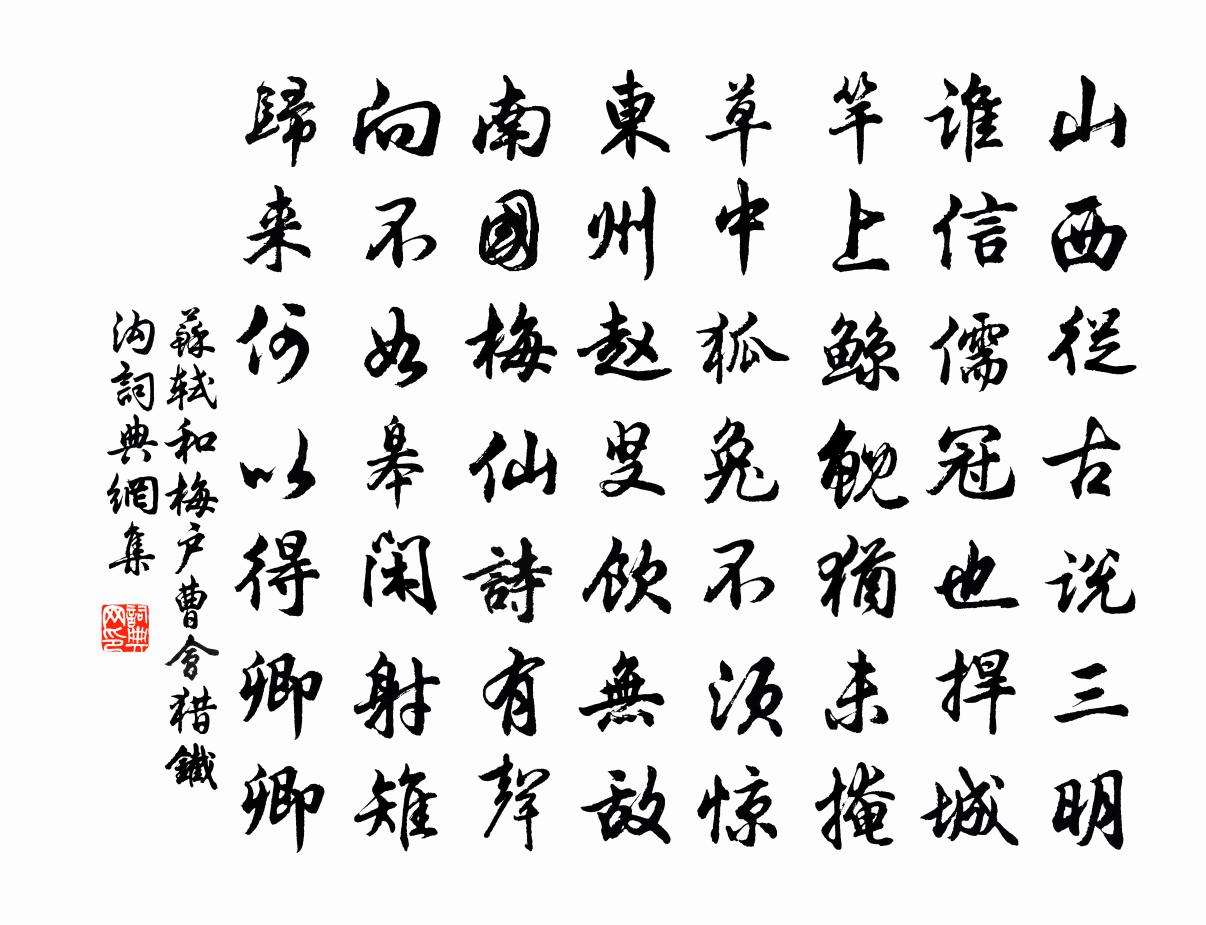 山西從古说三明
谁信儒冠也捍城
竿上鯨鯢猶未掩
草中狐兔不须惊
東州赵叟饮無敌
南國梅仙詩有聲
向不如皋閑射雉
歸来何以得卿卿
蘇轼和梅户曹會猎鐵
沟詞典網集
詞典网印